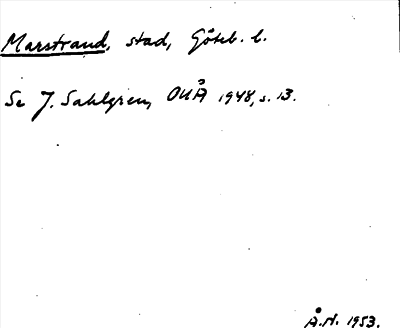 Marstrand, stad, Göteb. l.
Se J. Sahlgren, OUÅ 1948, s. 13.
Å.N. 1953.